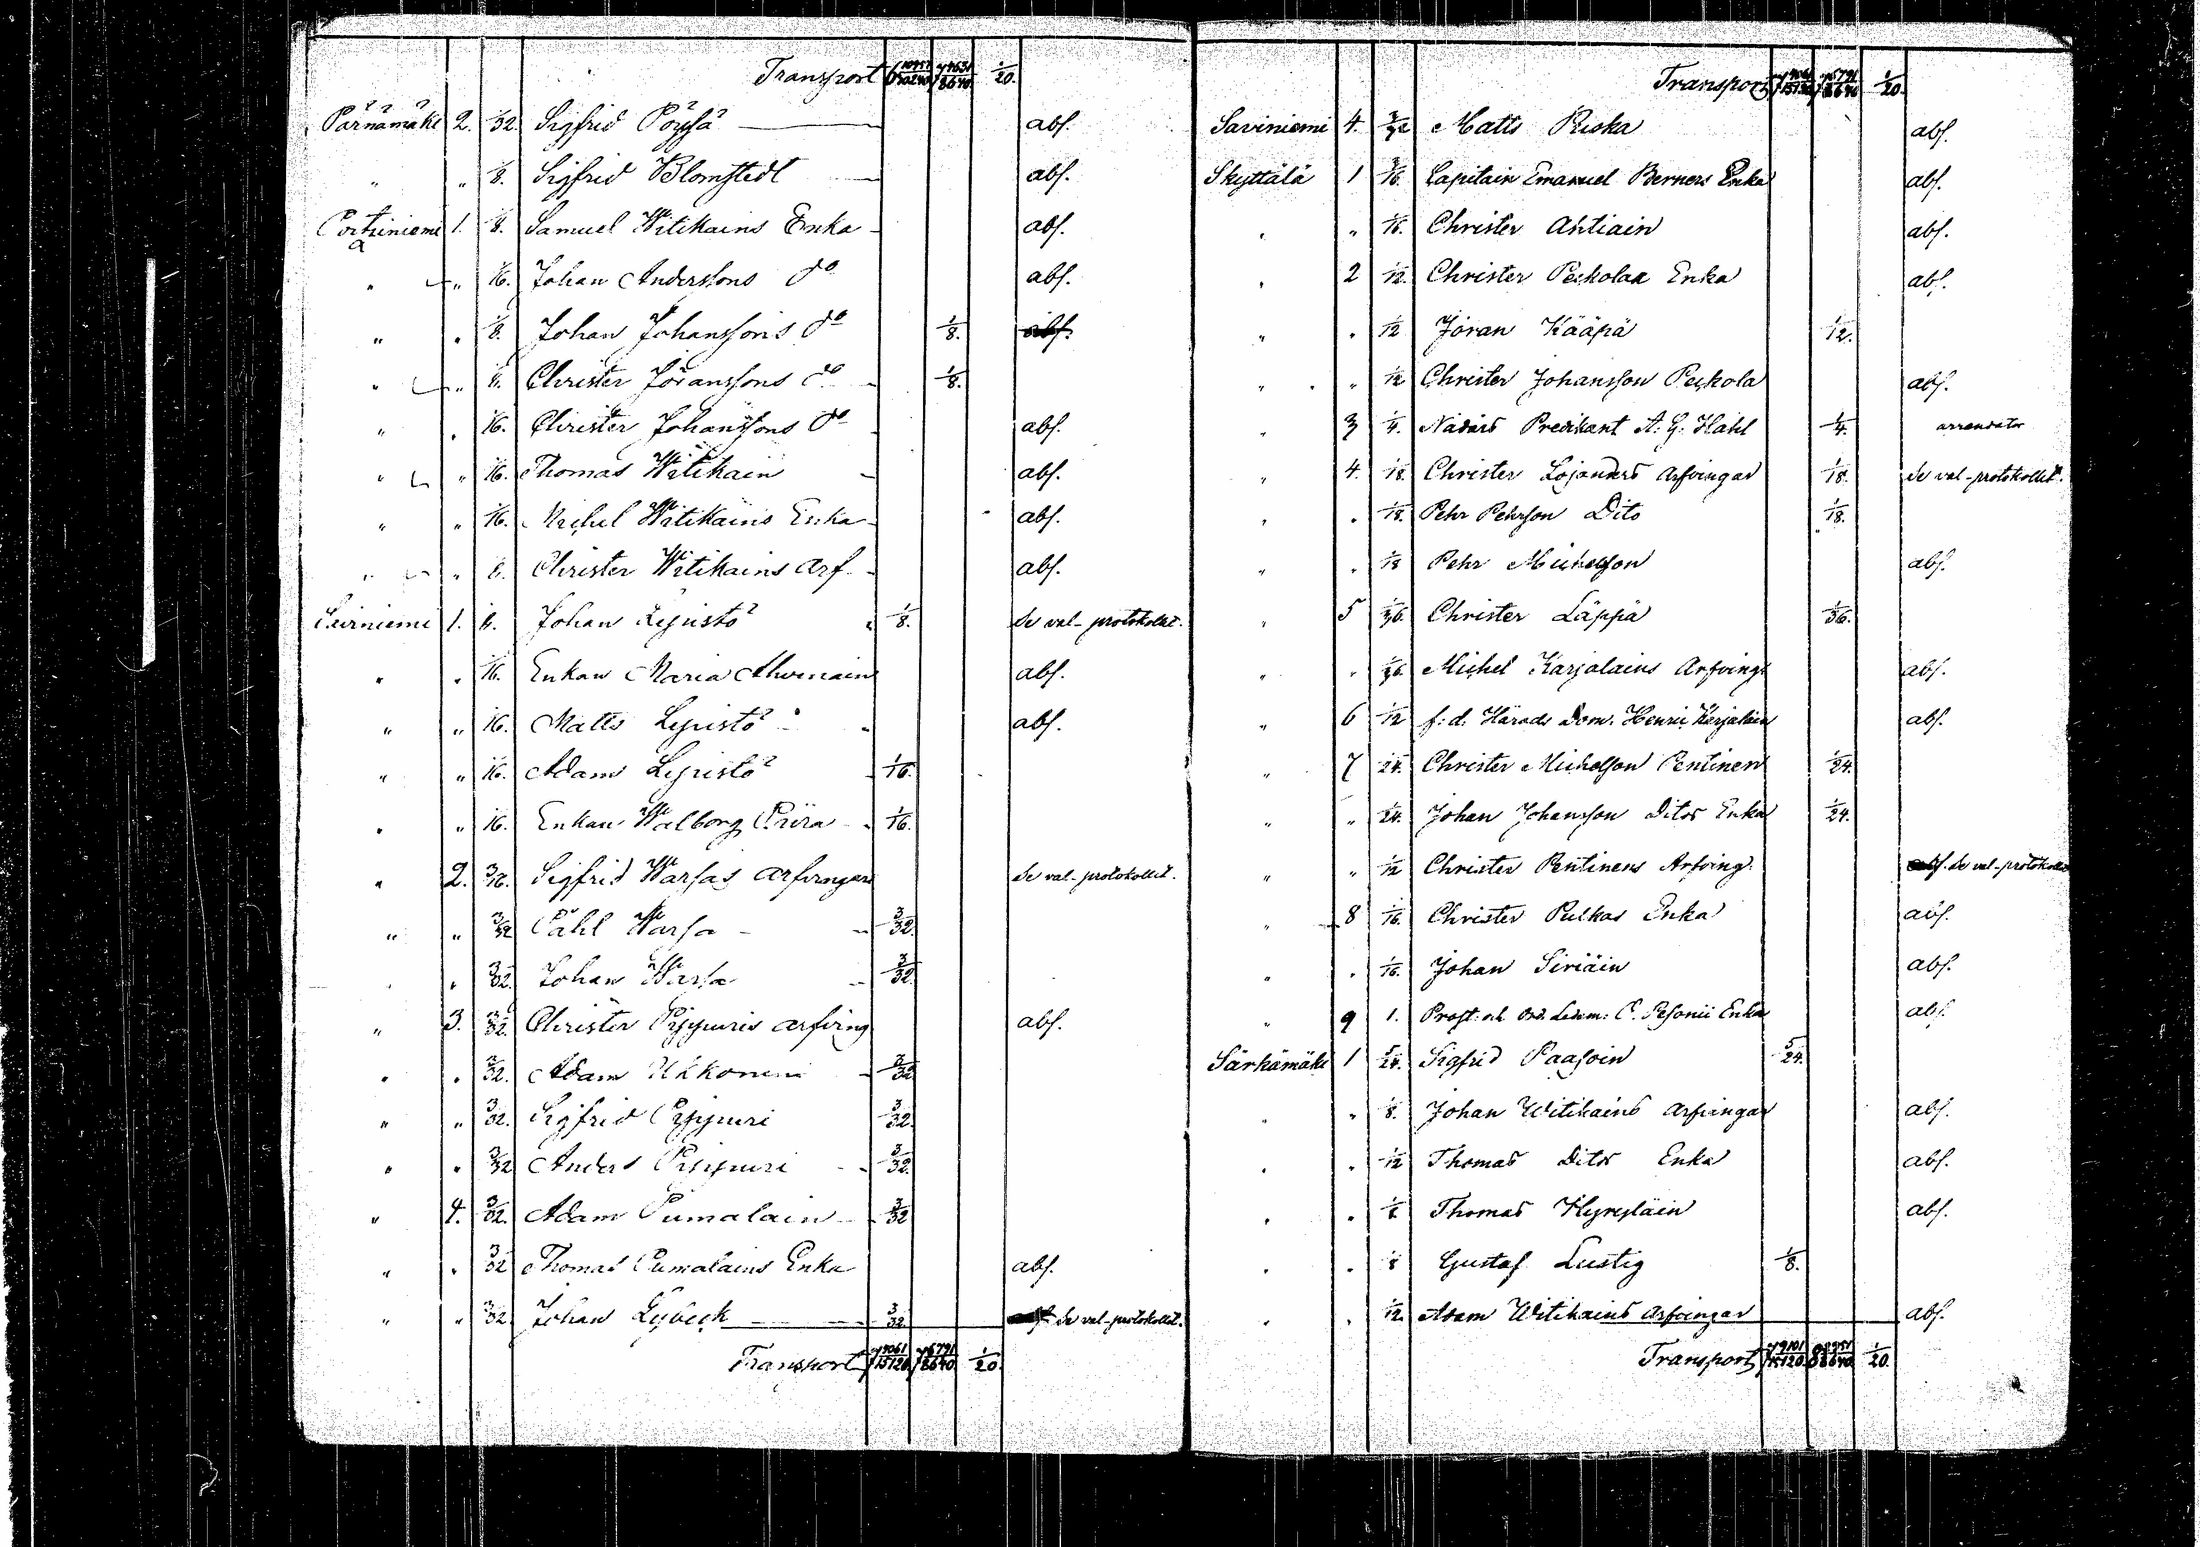 Transport 1/20.
Pärnämäki 2. 1/32. Sigfrid Pöyhä abs.
" " 1/8. Sigfrid Blomstedt abs.
Porkiniemi 1. 1/8. Samuel Witikains Enka abs.
" " 1/16. Johan Anderssons do abs.
" " 1/8. Johan Johanssons do 1/8.
" " 1/8. Christer Jöranssons do 1/8.
" " 1/16. Christer Johanssons do abs.
" " 1/16. Thomas Witikain abs.
" " 1/16. Michel Witikains Enka abs.
" " Christer Witikains Arf. abs.
Saviniemi 1. Johan Lepistö 1/8. Se val-protokollet.
" " 1/16. Enkan Maria abs.
" " 1/16. Matts Lepistö abs.
" " 1/16. Adam Lepistö 1/16.
" " 1/16. Enkan Walborg 1/16.
" 2. 3/16. Sigfrid Warsas arfvingar Se val-protokollet.
" " 3/32 Påhl Warsa 3/32.
" " 3/32. Johan Warsa 3/32.
" 3. 3/32. Christer Pyypuris arfving abs.
" " 3/32. Adam Ukkonen 3/32
" " 3/32. Sigfrid Pyypuri 3/32.
" " 3/32 Anders Pyypuri 3/32.
" 4. 3/32. Adam Pumalain 3/32
" " 3/32 Thomas Pumalains Enka abs.
" " 3/32. Johan Lybeck 3/32 Se val-protokollet.
Transport 7 9061/15120 7 6791/8640 1/20.
Transport 7 9061/15120 7 6791/8640 1/20.
Saviniemi 4. 3/32 Matts Riska abs.
Skyttälä 1 3/16. Capitain Emanuel Berners Enka abs.
" " 1/16. Christer Ahtiain abs.
" 2 1/12. Christer Peckolaa Enka abs.
" " 1/12 Jöran Kääpä 1/12.
" " 1/12 Christer Johansson Peckola abs.
" 3 1/4. Nådårs Predikant A. G. Hahl 1/4. arrendator
" 4. 1/18. Christer Lojanders Arfvingar 1/18. Se val-protokollet.
" " 1/18. Pehr Pehrson Dito 1/18.
" " 1/18 Pehr Michelson abs.
" 5 1/36. Christer Läppä 1/36.
" " 1/36. Michel Karjalains Arfving. abs.
" 6 1/12 f: d: Härads Dom. Henric Karjalain abs.
" 7 1/24. Christer Michelson Pentinen 1/24.
" " 1/24. Johan Johansson Ditos Enka 1/24.
" " 1/12 Christer Pentinens Arfving. Se val-protokollet
" 8 1/16. Christer Pulkas Enka abs.
" " 1/16. Johan Siriäin abs.
" 9 1. Prost: och Ord. Ledam: C. Pesonii Enka abs.
Särkämäki 1 5/24. Sigfrid Paasoin 5/24.
" " 1/8. Johan Witikains arfvingar abs.
" " 1/12 Thomas Ditos Enka abs.
" " Thomas Hyrysläin abs.
" " 1/8 Gustaf Lustig 1/8.
" " 1/12. Adam Witikains Arfvingar abs.
Transport 7 9101/15120 1/20.